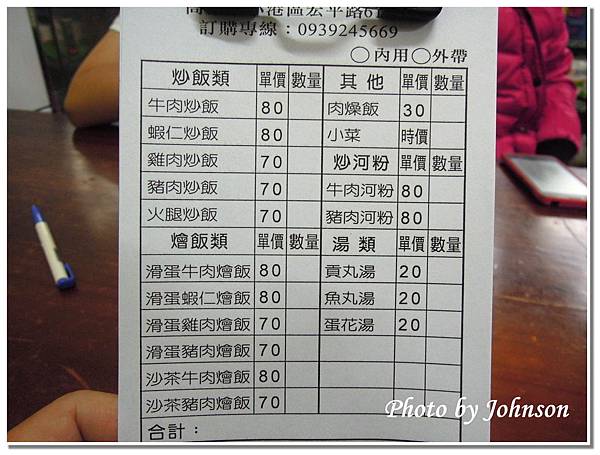 港區宏平路6
訂購專線：0939245669
○內用○外帶
炒飯類 單價 數量 其他 單價 數量
牛肉炒飯 80 肉燥飯 30
蝦仁炒飯 80 小菜 時價
雞肉炒飯 70 炒河粉 單價 數量
豬肉炒飯 70 牛肉河粉 80
火腿炒飯 70 豬肉河粉 80
燴飯類 單價 數量 湯類 單價 數量
滑蛋牛肉燴飯 80 貢丸湯 20
滑蛋蝦仁燴飯 80 魚丸湯 20
滑蛋雞肉燴飯 70 蛋花湯 20
滑蛋豬肉燴飯 70
沙茶牛肉燴飯 80
沙茶豬肉燴飯 70
合計：
Photo by Johnson